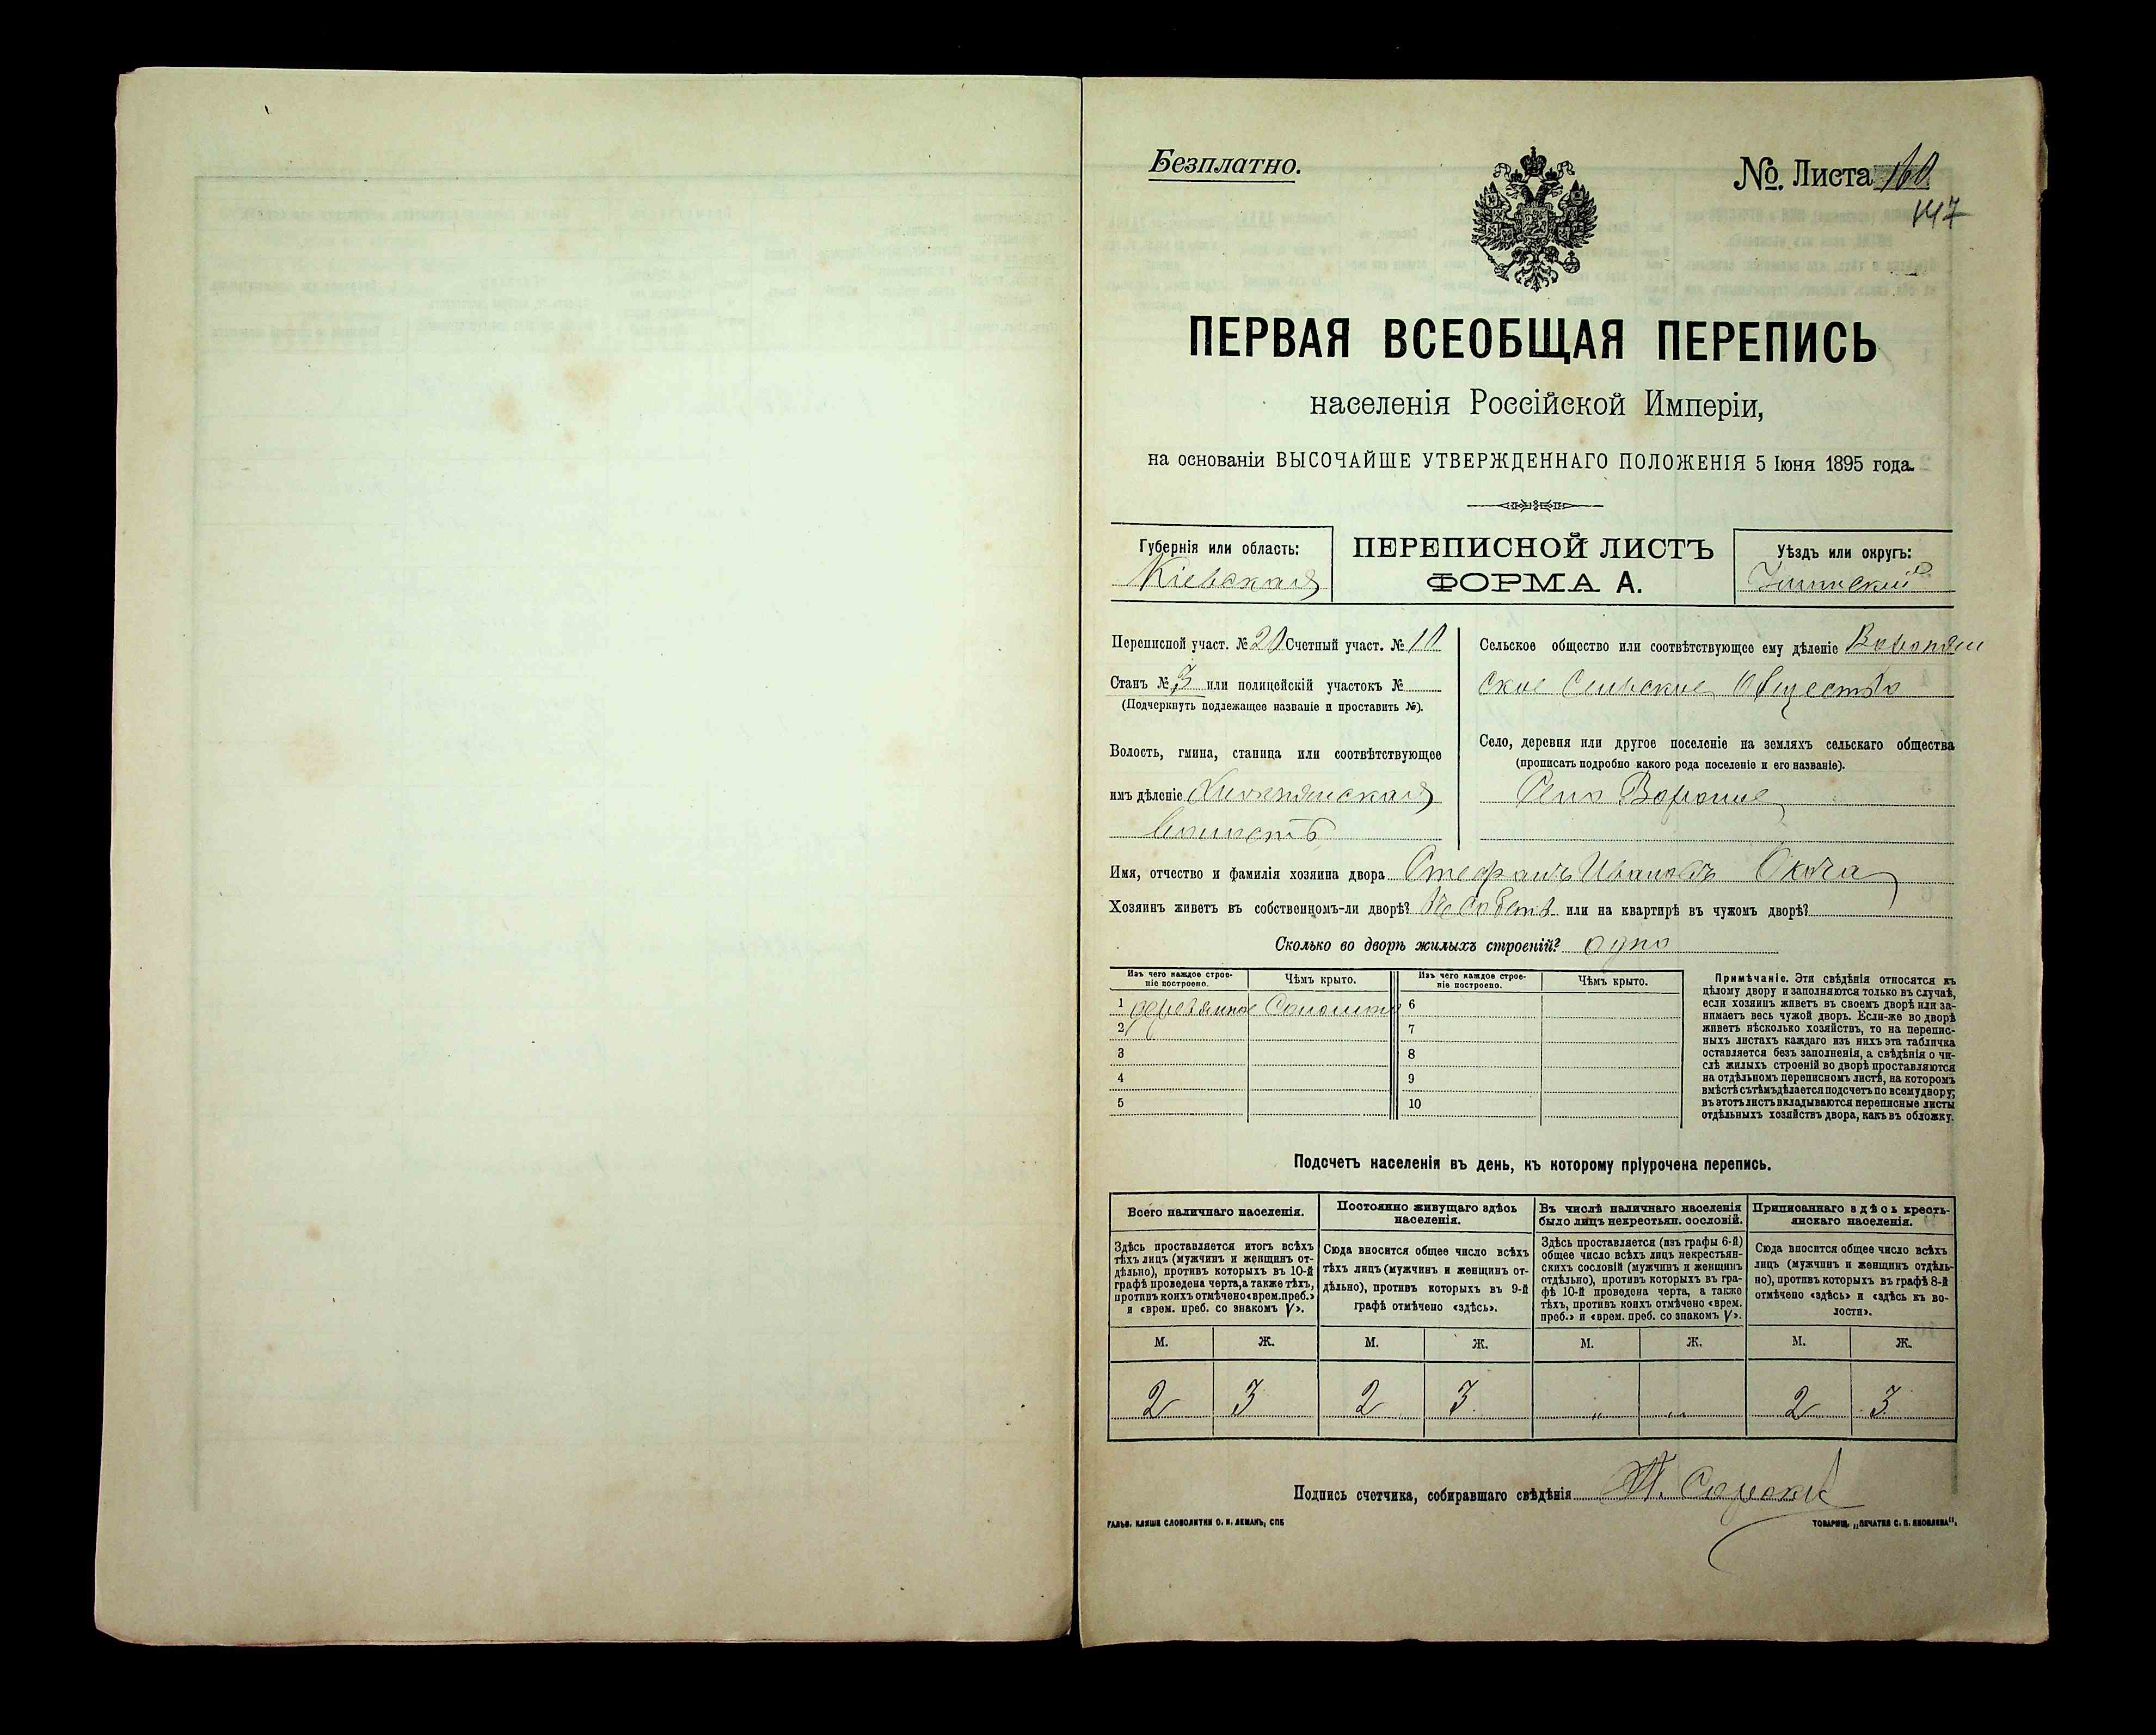 Безплатно.
№. Листа 10
147
ПЕРВАЯ ВСЕОБЩАЯ ПЕРЕПИСЬ
населенія Россійской Имперіи,
на основаніи ВЫСОЧАЙШЕ УТВЕРЖДЕННАГО ПОЛОЖЕНІЯ 5 Іюня 1895 года.
Губернія или область:
Кіевская
ПЕРЕПИСНОЙ ЛИСТЪ
ФОРМА А.
Уѣздъ или округъ:
Переписной участ. № 20 Счетный участ. № 10
Станъ № 3 или полицейскій участокъ №
(Подчеркнуть подлежащее названіе и проставить №).
Волость, гмина, станица или соотвѣтствующее
имъ дѣленіе
волость
Сельское общество или соотвѣтствующее ему дѣленіе Воропян
ское Сельское Общество
Село, деревня или другое поселеніе на земляхъ сельскаго общества
(прописать подробно какого рода поселеніе и его названіе).
Село Вороние
Имя, отчество и фамилія хозяина двора Стефанъ Ивановъ Окоча
Хозяинъ живетъ въ собственномъ-ли дворѣ? въ собств или на квартирѣ въ чужомъ дворѣ?
Сколько во дворѣ жилыхъ строеній? одно
Изъ чего каждое строе-
ніе построено.
Чѣмъ крыто.
Изъ чего каждое строе-
ніе построено.
Чѣмъ крыто.
1 деревянное Соломою 6
2 7
3 8
4 9
5 10
Примѣчаніе. Эти свѣдѣнія относятся къ
цѣлому двору и заполняются только въ случаѣ,
если хозяинъ живетъ въ своемъ дворѣ или за-
нимаетъ весь чужой дворъ. Если-же во дворѣ
живетъ нѣсколько хозяйствъ, то на перепис-
ныхъ листахъ каждаго изъ нихъ эта табличка
оставляется безъ заполненія, а свѣдѣнія о чи-
слѣ жилыхъ строеній во дворѣ проставляются
на отдѣльномъ переписномъ листѣ, на которомъ
вмѣстѣ съ тѣмъ дѣлается подсчетъ по всему двору;
въ этотъ листъ вкладываются переписные листы
отдѣльныхъ хозяйствъ двора, какъ въ обложку.
Подсчетъ населенія въ день, къ которому пріурочена перепись.
Всего наличнаго населенія.
Здѣсь проставляется итогъ всѣхъ
тѣхъ лицъ (мужчинъ и женщинъ от-
дѣльно), противъ которыхъ въ 10-й
графѣ проведена черта, а также тѣхъ,
противъ коихъ отмѣчено «врем. преб.»
и «врем. преб. со знакомъ V».
Постоянно живущаго здѣсь
населенія.
Сюда вносится общее число всѣхъ
тѣхъ лицъ (мужчинъ и женщинъ от-
дѣльно), противъ которыхъ въ 9-й
графѣ отмѣчено «здѣсь».
Въ числѣ наличнаго населенія
было лицъ некрестьян. сословій.
Здѣсь проставляется (изъ графы 6-й)
общее число всѣхъ лицъ некрестьян-
скихъ сословій (мужчинъ и женщинъ
отдѣльно), противъ которыхъ въ гра-
фѣ 10-й проведена черта, а также
тѣхъ, противъ коихъ отмѣчено «врем.
преб.» и «врем. преб. со знакомъ V».
Приписаннаго здѣсь кресть-
янскаго населенія.
Сюда вносится общее число всѣхъ
лицъ (мужчинъ и женщинъ отдѣль-
но), противъ которыхъ въ графѣ 8-й
отмѣчено «здѣсь» и «здѣсь къ во-
лости».
М. Ж. М. Ж. М. Ж. М. Ж.
2 3 2 3 „ „ 2 3
Подпись счетчика, собиравшаго свѣдѣнія
ГАЛЬВ. КЛИШЕ СЛОВОЛИТНИ О. И. ЛЕМАНЪ, СПБ
ТОВАРИЩ. „ПЕЧАТНЯ С. П. ЯКОВЛЕВА".